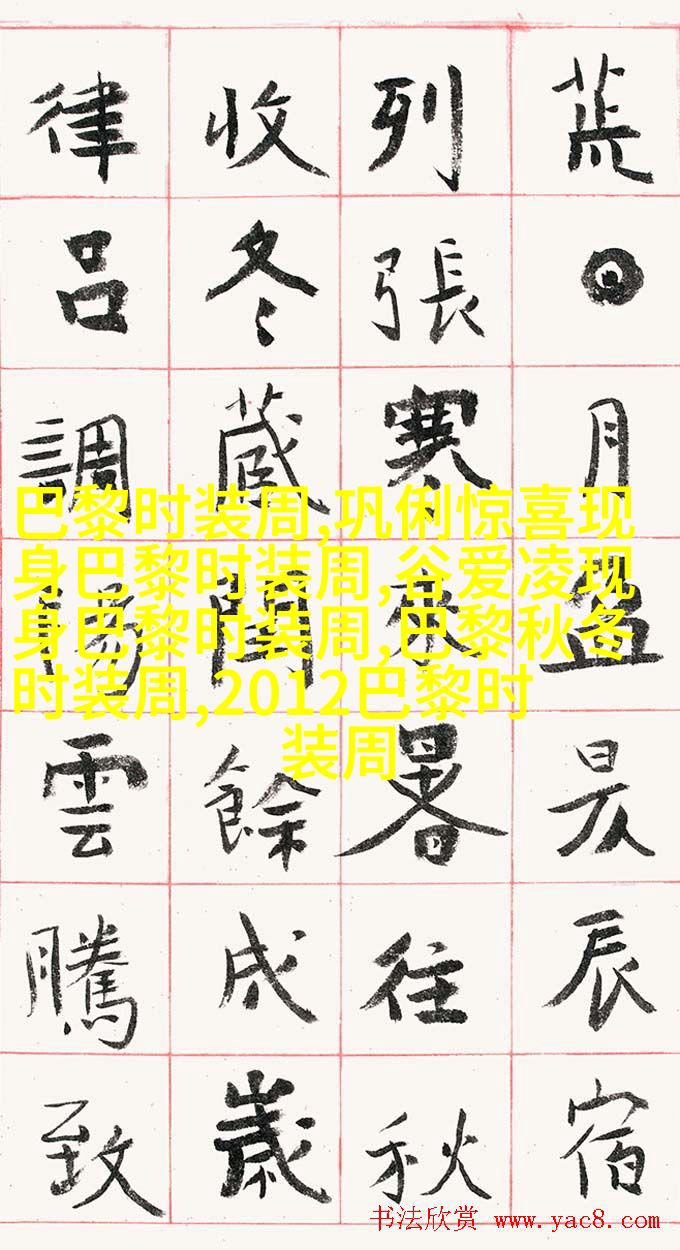 荒日月盈昃辰宿
列張寒來暑往秋
收冬藏閏餘成歲
律吕調陽雲騰致
巴黎时装周,巩俐惊喜现
身巴黎时装周,谷爱凌现
身巴黎时装周,巴黎秋冬
时装周,2012巴黎时
装周
书法欣赏 www.yac8.com